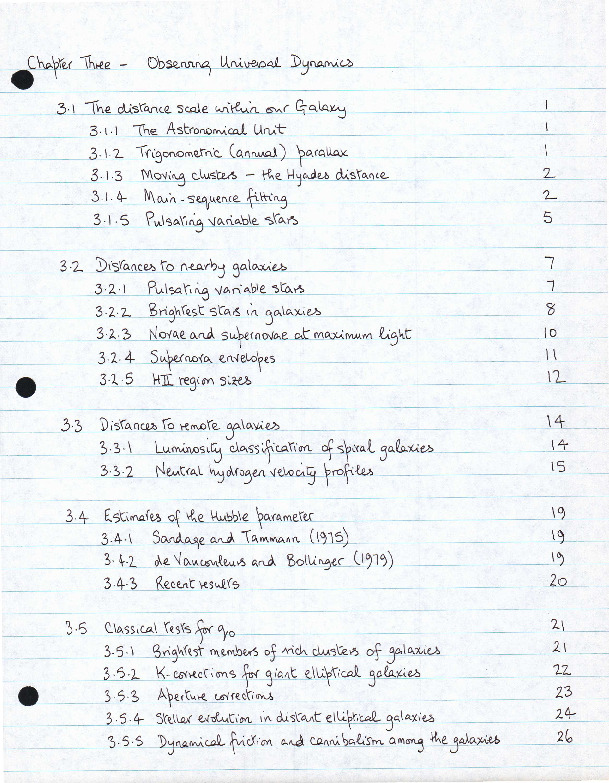 Chapter Three - Observing Universal Dynamics
3.1 The distance scale within our Galaxy 1
3.1.1 The Astronomical Unit 1
3.1.2 Trigonometric (annual) parallax 1
3.1.3 Moving clusters - the Hyades distance 2
3.1.4 Main-sequence fitting 2
3.1.5 Pulsating variable stars 5
3.2 Distances to nearby galaxies 7
3.2.1 Pulsating variable stars 7
3.2.2 Brightest stars in galaxies 8
3.2.3 Novae and supernovae at maximum light 10
3.2.4 Supernova envelopes 11
3.2.5 HII region sizes 12
3.3 Distances to remote galaxies 14
3.3.1 Luminosity classification of spiral galaxies 14
3.3.2 Neutral hydrogen velocity profiles 15
3.4 Estimates of the Hubble parameter 19
3.4.1 Sandage and Tammann (1975) 19
3.4.2 de Vaucouleurs and Bollinger (1979) 19
3.4.3 Recent results 20
3.5 Classical tests for q₀ 21
3.5.1 Brightest members of rich clusters of galaxies 21
3.5.2 K-corrections for giant elliptical galaxies 22
3.5.3 Aperture corrections 23
3.5.4 Stellar evolution in distant elliptical galaxies 24
3.5.5 Dynamical friction and cannibalism among the galaxies 26